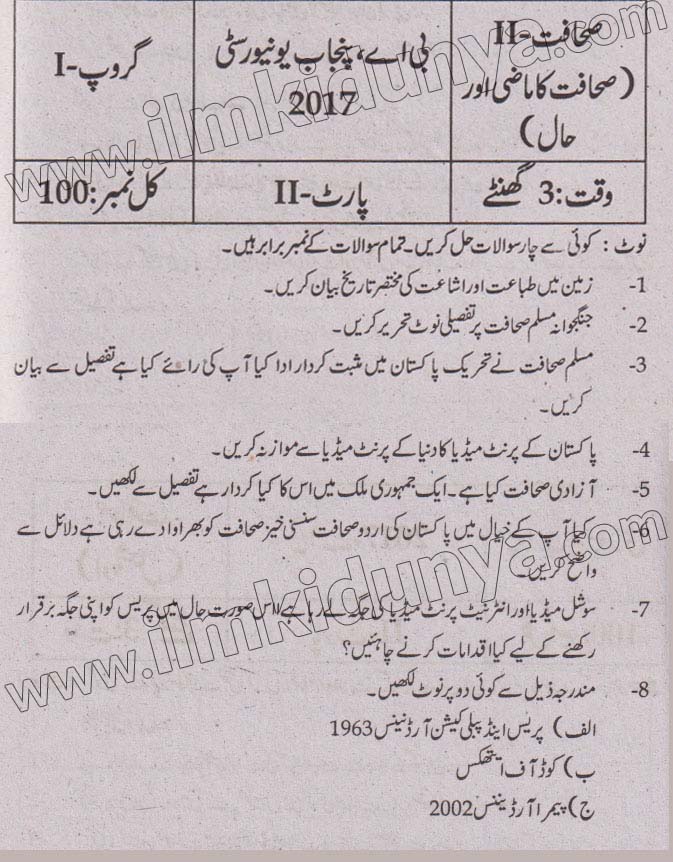 صحافت-II
(صحافت کا ماضی اور
حال)
بی اے، پنجاب یونیورسٹی
2017
گروپ-I
وقت: 3 گھنٹے
پارٹ-II
کل نمبر: 100
نوٹ : کوئی سے چار سوالات حل کریں۔ تمام سوالات کے نمبر برابر ہیں۔
1- زمین میں طباعت اور اشاعت کی مختصر تاریخ بیان کریں۔
2- جنگجوانہ مسلم صحافت پر تفصیلی نوٹ تحریر کریں۔
3- مسلم صحافت نے تحریک پاکستان میں مثبت کردار ادا کیا آپ کی رائے کیا ہے تفصیل سے بیان
کریں۔
4- پاکستان کے پرنٹ میڈیا کا دنیا کے پرنٹ میڈیا سے موازنہ کریں۔
5- آزادی صحافت کیا ہے۔ ایک جمہوری ملک میں اس کا کیا کردار ہے تفصیل سے لکھیں۔
6- کیا آپ کے خیال میں پاکستان کی اردو صحافت سنسنی خیز صحافت کو بھراوا دے رہی ہے دلائل سے
واضح کریں۔
7- سوشل میڈیا اور انٹرنیٹ پرنٹ میڈیا کی جگہ لے رہا ہے، اس صورت حال میں پریس کو اپنی جگہ برقرار
رکھنے کے لیے کیا اقدامات کرنے چاہئیں؟
8- مندرجہ ذیل سے کوئی دو پر نوٹ لکھیں۔
الف) پریس اینڈ پبلی کیشن آرڈنینس 1963
ب) کوڈ آف ایتھکس
ج) پیمرا آرڈیننس 2002
www.ilmkidunya.com
www.ilmkidunya.com